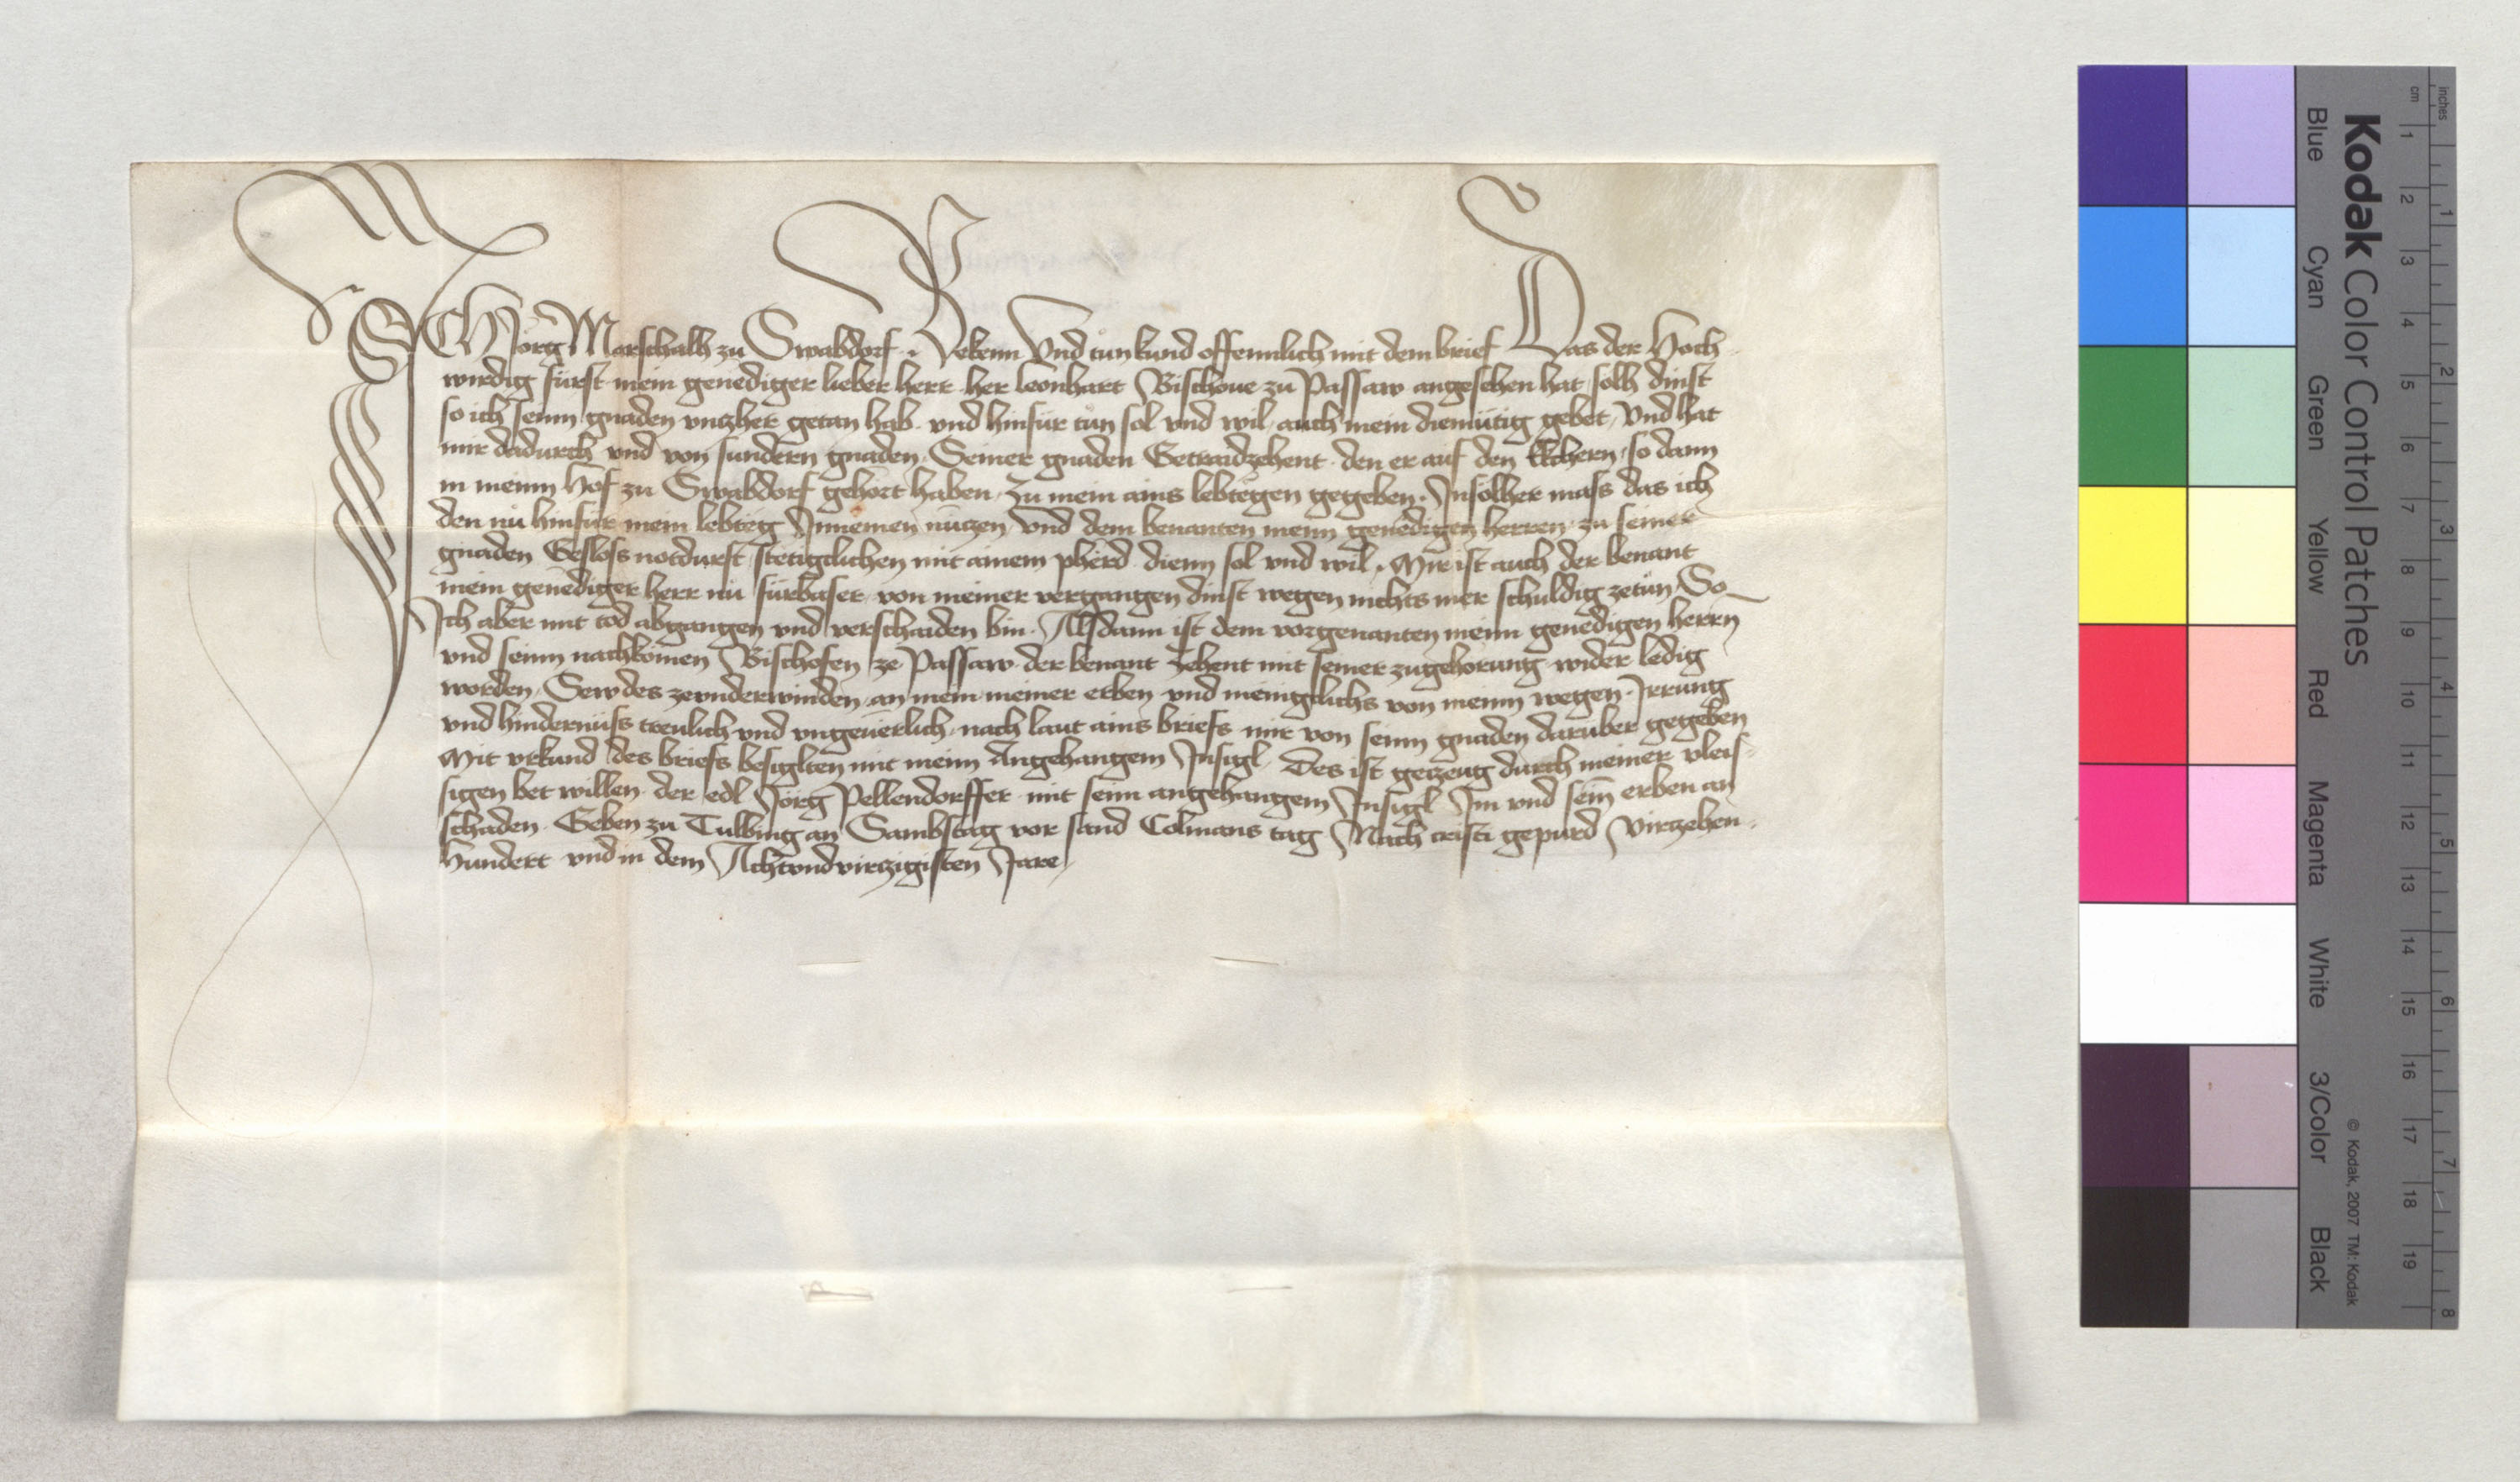 ICH Jorg Marschalh zu Swabdorf. Bekenn Vnd tun kund offennlich mit dem brief Das der Hoch-
wirdig fürst mein genediger lieber herr her Leonhart Bischoue zu Passaw angesehen hat solh dinst
so ich seinn gnaden vntzher getan hab. vnd hinfür tun sol vnd wil, auch mein diemütig gebet, Vnd hat
mir dadurch vnd von sundern gnaden. Seiner gnaden Getraidzehent. den er auf den Ekchern, so dann
in meinn Hof zu Swabdorf gehört haben, Zu mein ains lebtegen gegeben. Insolher mass das ich
den nu hinfür mein lebteg Innemen nützen, vnd dem benanten meinn genedigen herren, zu seiner
gnaden Gesloss notdurft, stetigclichen mit ainem pherd dienn sol vnd wil, Mir ist auch der benant
mein genediger herr nu fürbaser von meiner vergangen dinst wegen nichts mer schuldig zetun, So
Ich aber mit tod abgangen vnd verschaiden bin. Alsdann ist dem vorgenanten meinn genedigen herrn
vnd seinn nachkomen Bischofen ze Passaw der benant zehent mit seiner zugehorung wider ledig
worden, Sew des zevnderwinden, an mein meiner erben vnd menigclichs von meinn wegen, Irrung
vnd hindernüss treulich vnd vngeuerlich, nach laut ains briefs mir von seinn gnaden darüber gegeben
Mit vrkund des briefs besiglten mit meinn Angehangem Insigl. Des ist getzeug durch meiner vleis-
sigen bet willen. der edl Jörg Pellendorffer mit seinn angehangem Insigl Im vnd sein erben an
schaden. Geben zu Tulbing an Sambstag vor sand Colmans tag Nach cristi gepurd Virtzehen-
hundert vnd in dem Achtvndvirtzigisten Jare,
Kodak Color Control Patches
Blue Cyan Green Yellow Red Magenta White 3/Color Black
© Kodak, 2007 TM: Kodak
cm 1 2 3 4 5 6 7 8 9 10 11 12 13 14 15 16 17 18 19
inches 1 2 3 4 5 6 7 8